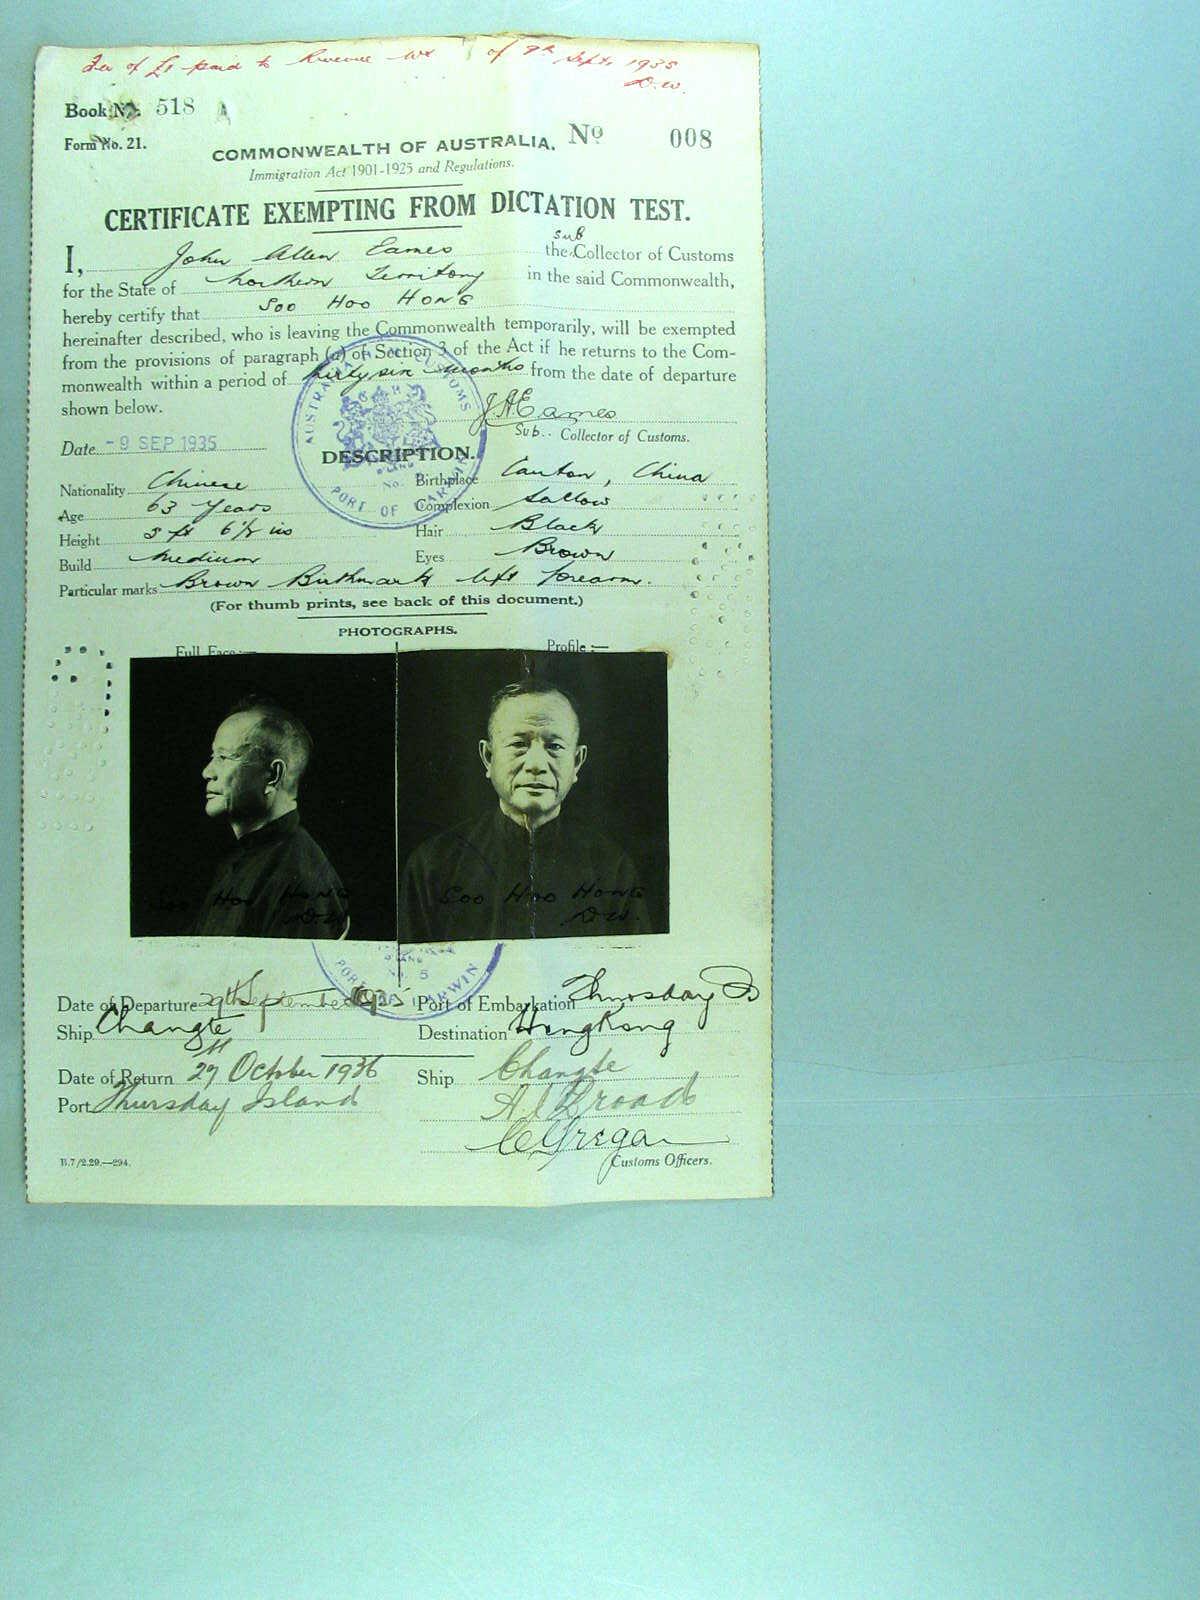 Fee of £1 paid to Revenue of 9th Sept. 1935
D.W.
Book No. 518
Form No. 21.
COMMONWEALTH OF AUSTRALIA. No 008
Immigration Act 1901-1925 and Regulations.
CERTIFICATE EXEMPTING FROM DICTATION TEST.
I, John Allen Eames the Sub Collector of Customs
for the State of Northern Territory in the said Commonwealth,
hereby certify that Soo Hoo HONG
hereinafter described, who is leaving the Commonwealth temporarily, will be exempted
from the provisions of paragraph (a) of Section 3 of the Act if he returns to the Com-
monwealth within a period of thirty six months from the date of departure
shown below.
J.A.Eames
Sub. Collector of Customs.
Date -9 SEP 1935
AUSTRALIA CUSTOMS
PORT OF DARWIN
DESCRIPTION.
Nationality Chinese Birthplace Canton, China
Age 63 Years Complexion Sallow
Height 5 ft 6½ ins Hair Black
Build Medium Eyes Brown
Particular marks Brown Birthmark left forearm.
(For thumb prints, see back of this document.)
PHOTOGRAPHS.
Full Face:— Profile:—
Soo Hoo HONG Soo Hoo HONG
D.W. D.W.
No. 5
PORT OF DARWIN
Date of Departure 29th September 1935 Port of Embarkation Thursday Is
Ship Changte Destination HongKong
Date of Return 29th October 1936 Ship Changte
Port Thursday Island
Customs Officers.
B.7/2.29.—294.